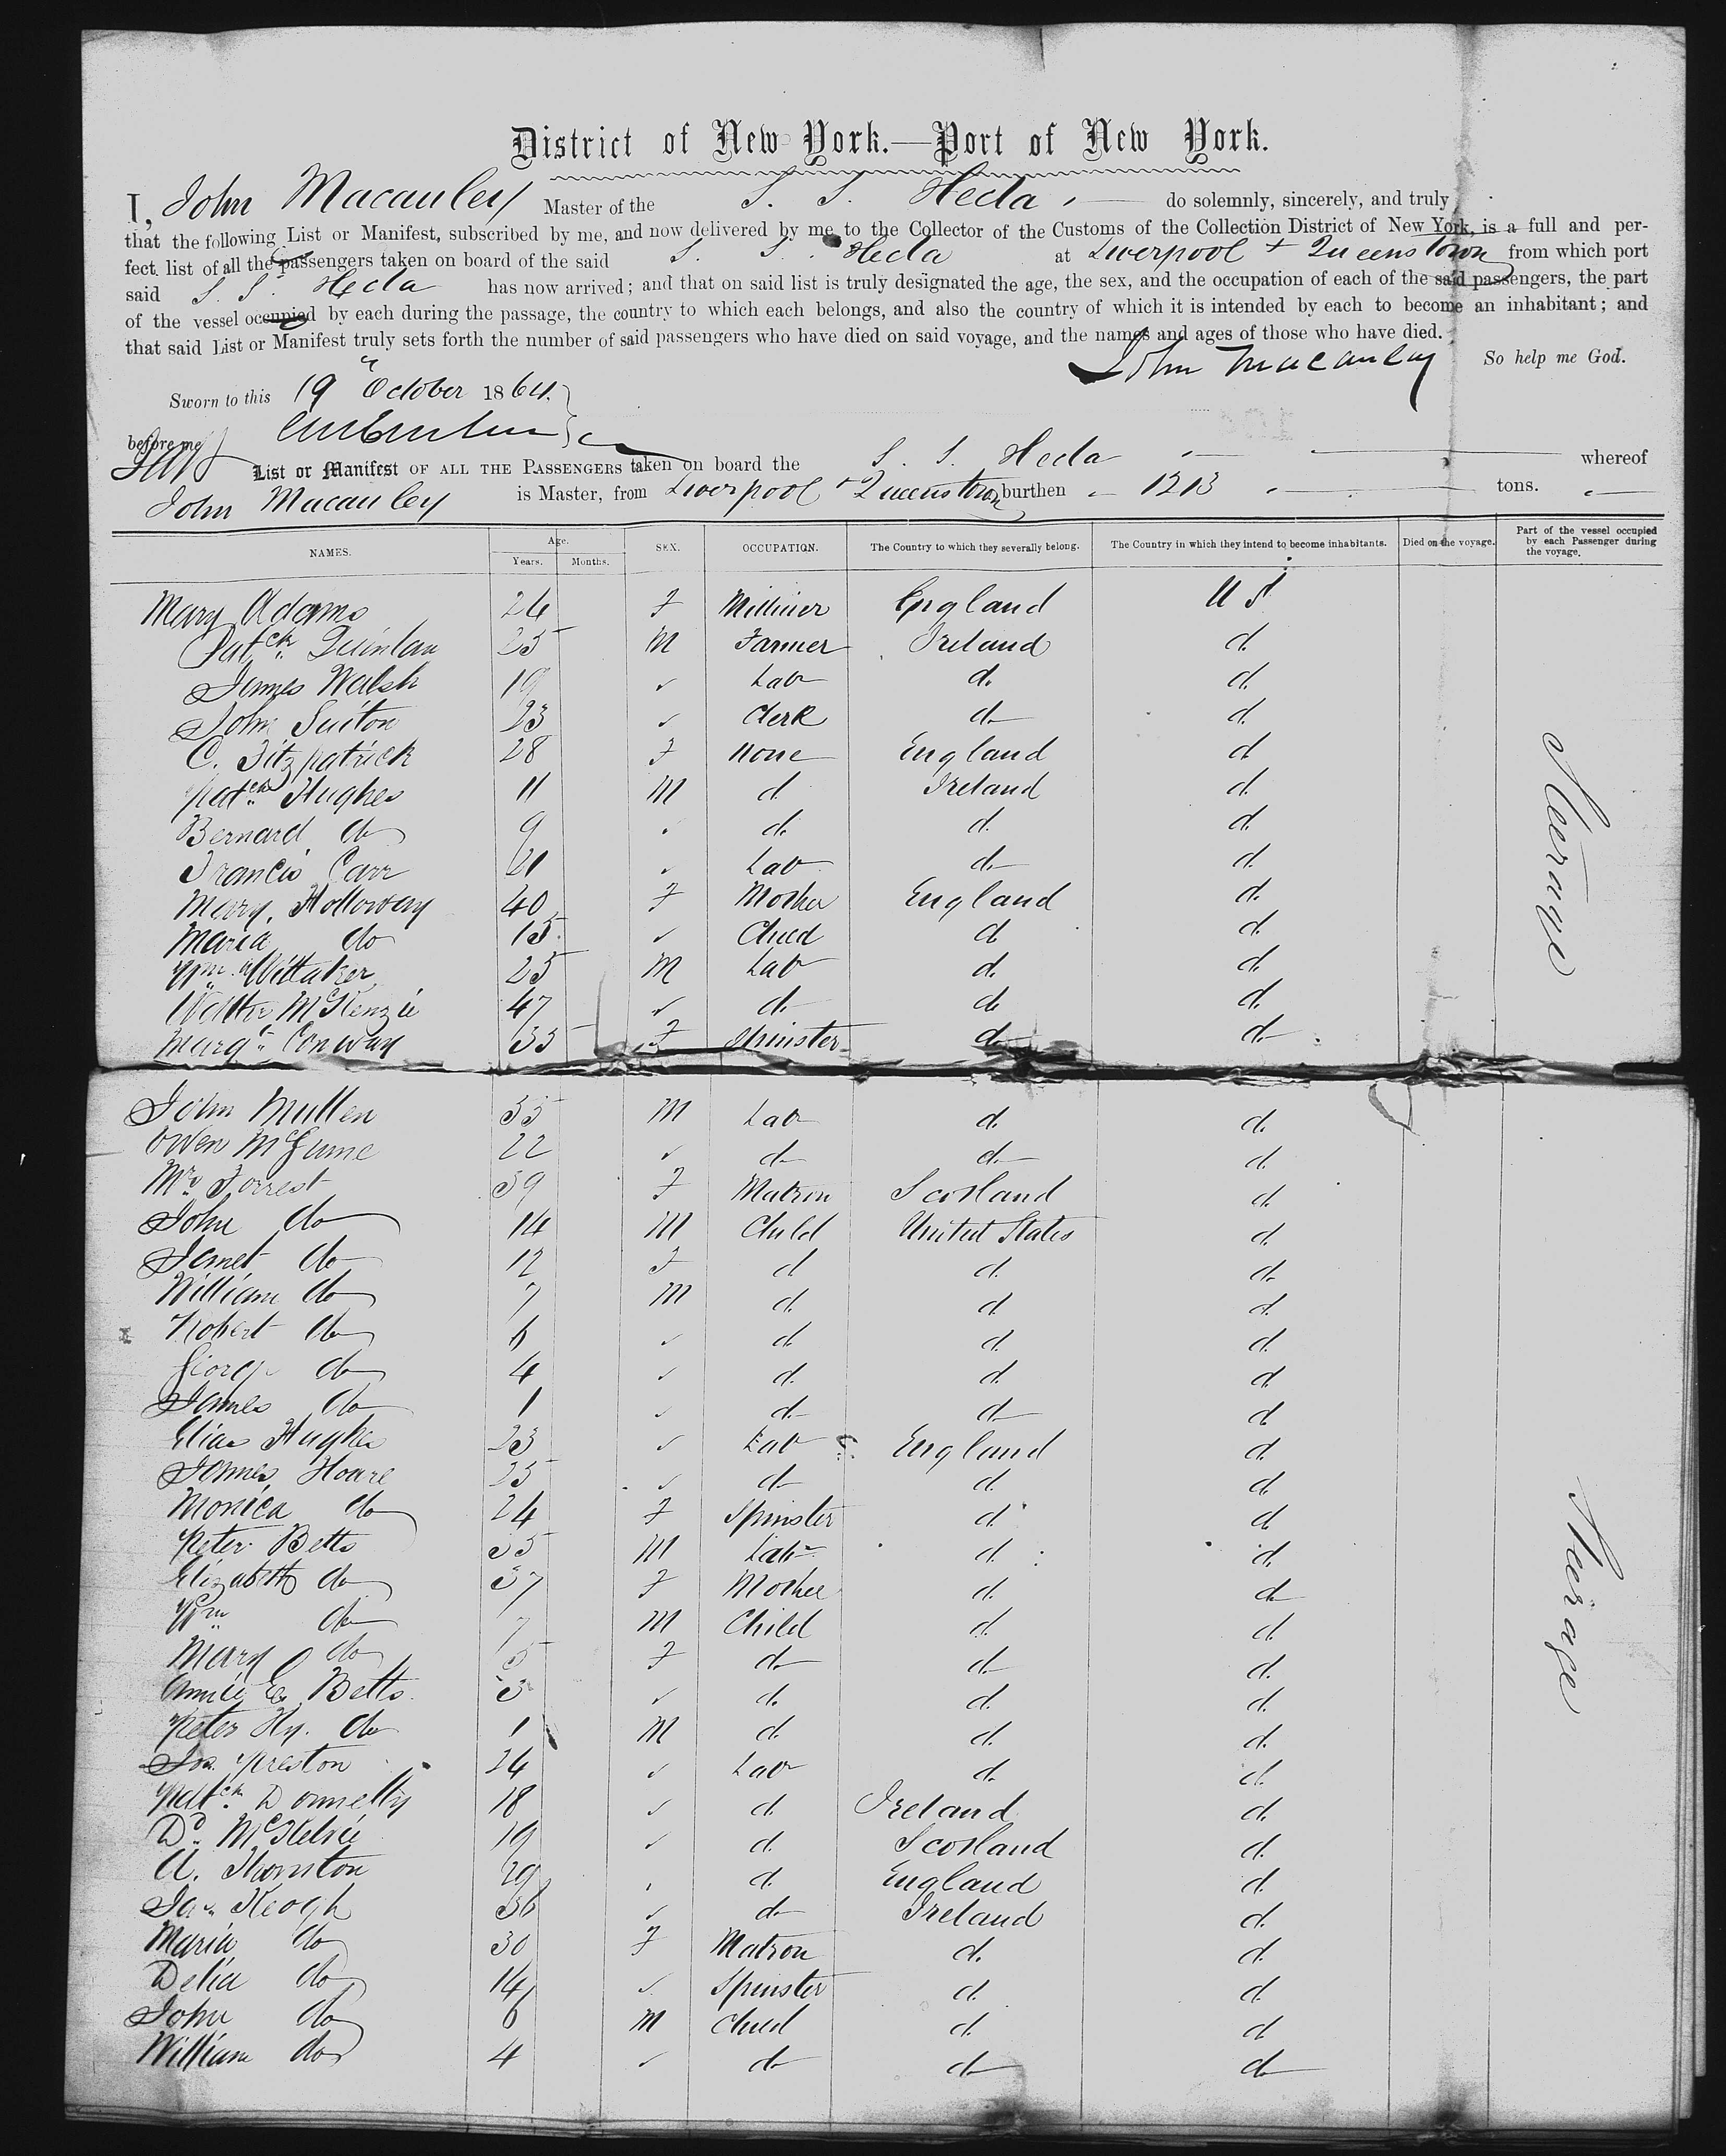 District of New York.—Port of New York.
I, John Macauley Master of the S. S. Hecla do solemnly, sincerely, and truly
that the following List or Manifest, subscribed by me, and now delivered by me to the Collector of the Customs of the Collection District of New York, is a full and per-
fect list of all the passengers taken on board of the said S. S. Hecla at Liverpool + Queenstown from which port
said S. S. Hecla has now arrived; and that on said list is truly designated the age, the sex, and the occupation of each of the said passengers, the part
of the vessel occupied by each during the passage, the country to which each belongs, and also the country of which it is intended by each to become an inhabitant; and
that said List or Manifest truly sets forth the number of said passengers who have died on said voyage, and the names and ages of those who have died.
John Macauley So help me God.
Sworn to this 19 October 1864.
before me
List or Manifest OF ALL THE PASSENGERS taken on board the S. S. Hecla whereof
John Macauley is Master, from Liverpool + Queenstown burthen 1213 tons.
NAMES. Age. Years. Months. SEX. OCCUPATION. The Country to which they severally belong. The Country in which they intend to become inhabitants. Died on the voyage. Part of the vessel occupied by each Passenger during the voyage.
Mary Adams 24 F Milliner England U S
Patck Quinlan 25 M Farmer Ireland d.
James Walsh 19 ✓ Lab d. d.
John Suiton 23 ✓ Clerk d. d.
C. Fitzpatrick 28 F None England d
Patck Hughes 11 M d Ireland d.
Bernard do 9 ✓ d. d. d.
Francis Carr 21 ✓ Lab d. d.
Mary Holloway 40 F Mother England d.
Maria do 15 ✓ Child d d.
Wm Wittaker 25 M Lab d. d.
Walter McKenzie 47 ✓ d. d. d.
Margt Conway 35 F Spinster d. d.
Steerage
John Mullen 35 M Lab d. d.
Owen 22 ✓ d. d. d.
Mrs Forrest 39 F Matron Scotland d.
John do 14 M Child United States d.
Janet do 12 F d d. d.
William do 7 M d. d d.
Robert do 6 ✓ d d. d.
George do 4 ✓ d. d. d
James do 1 ✓ d. d. d
Elias Hughes 23 ✓ Lab England d.
James Hoare 25 ✓ d. d. d
Monica do 24 F Spinster d. d
Peter Betts 35 M Labr d. d.
Elizabeth do 37 F Mother d. d.
Wm do 7 M Child d. d.
Mary do 5 F d. d. d.
Annie E. Betts 3 ✓ d. d. d.
Peter Hy. do 1 M d. d. d.
Jos. Preston 24 ✓ Lab d. d.
Patck Donnelly 18 ✓ d. Ireland d.
Dd McKelvie 19 ✓ d. Scotland d.
A. Thornton 29 ✓ d. England d.
Jas Keogh 36 ✓ d. Ireland d.
Maria do 30 F Matron d. d.
Delia do 14 ✓ Spinster d. d.
John do 6 M Child d. d
William do 4 ✓ d. d. d.
Steerage